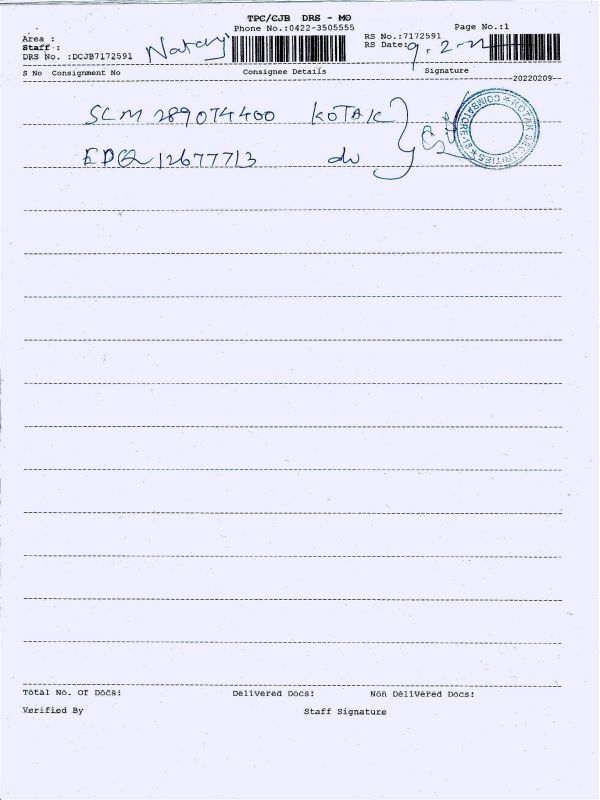 TPC/CJB DRS - MO
Phone No.:0422-3505555
Page No.:1
Area :
Staff :
DRS No. :DCJB7172591
Nataraj
RS No.:7172591
RS Date: 9.2.22
S No Consignment No Consignee Details Signature
20220209
SLM 289074400 KOTAK
12677713 do
KOTAK SECURITIES
COIMBATORE-18
Total No. Of Docs: Delivered Docs: Non Delivered Docs:
Verified By Staff Signature